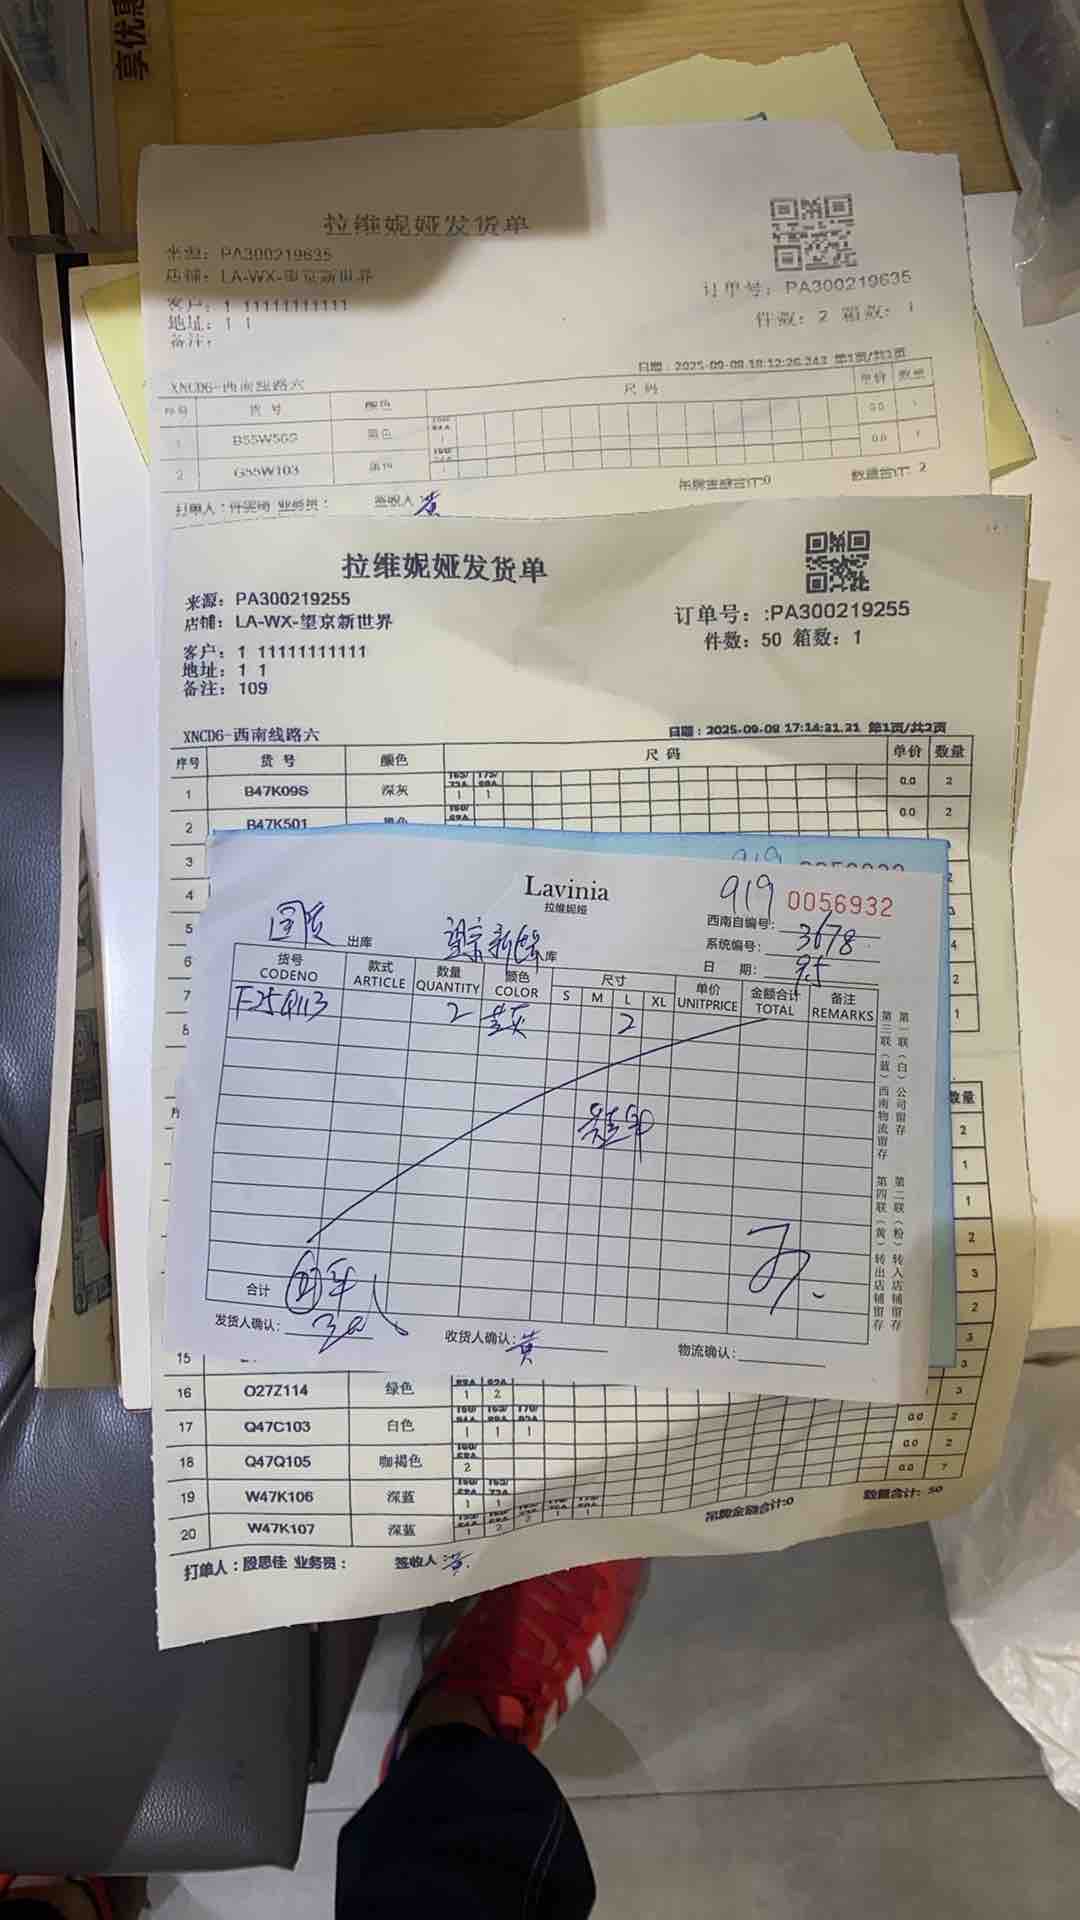 享优惠
拉维妮娅发货单
来源：PA300219635
店铺：LA-WX-望京新世界
订单号：PA300219635
客户：1 11111111111
件数：2 箱数：1
地址：1 1
备注：
日期：2025-09-08 18:12:26.243 第1页/共1页
XNCD6-西南线路六
序号 货号 颜色 尺码 单价 数量
1 B55W56S 黑色 1 0.0 1
2 G55W103 1 0.0 1
吊牌金额合计:0 数量合计：2
打单人： 业务员： 签收人：黄
拉维妮娅发货单
来源：PA300219255
店铺：LA-WX-望京新世界
订单号：:PA300219255
件数：50 箱数：1
客户：1 11111111111
地址：1 1
备注：109
XNCD6-西南线路六
日期：2025-09-08 17:14:31.31 第1页/共2页
序号 货号 颜色 尺码 单价 数量
1 B47K09S 深灰 1 1 0.0 2
2 B47K501 黑色 0.0 2
3
4
5
6
7
8
919 0056932
Lavinia
拉维妮娅
919 0056932
西南自编号：3678
出库
库
系统编号：
日 期：9.5
货号 款式 数量 颜色 尺寸 单价 金额合计 备注
CODENO ARTICLE QUANTITY COLOR S M L XL UNITPRICE TOTAL REMARKS
F25Q113 2 2
第一联（白）公司留存
第二联（粉）转入店铺留存
第三联（蓝）西南物流留存
第四联（黄）转出店铺留存
合计
发货人确认：
收货人确认：黄
物流确认：
数量
2
1
1
2
3
2
3
3
15
16 O27Z114 绿色 1 2 3
17 Q47C103 白色 1 1 1 0.0 2
18 Q47Q105 咖褐色 2 0.0 2
19 W47K106 深蓝 1 1 0.0 7
20 W47K107 深蓝 1 2 2 1 1
吊牌金额合计:0 数量合计：50
打单人：殷思佳 业务员： 签收人：黄